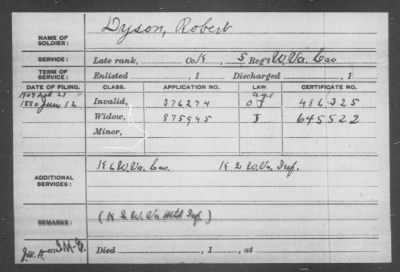 NAME OF SOLDIER: Dyson, Robert
SERVICE: Late rank, Co. K, 5 Reg't W. Va. Cav
TERM OF SERVICE: Enlisted , 1 Discharged , 1
DATE OF FILING. CLASS. APPLICATION NO. LAW. CERTIFICATE NO.
1880 June 12 Invalid, 376274 486.325
Widow, 875945 I 645522
Minor,
ADDITIONAL SERVICES: K 6 W. Va. Cav. K 2 W. Va. Inf.
REMARKS: (K 2 W. Va Mtd Inf)
Died , 1 , at